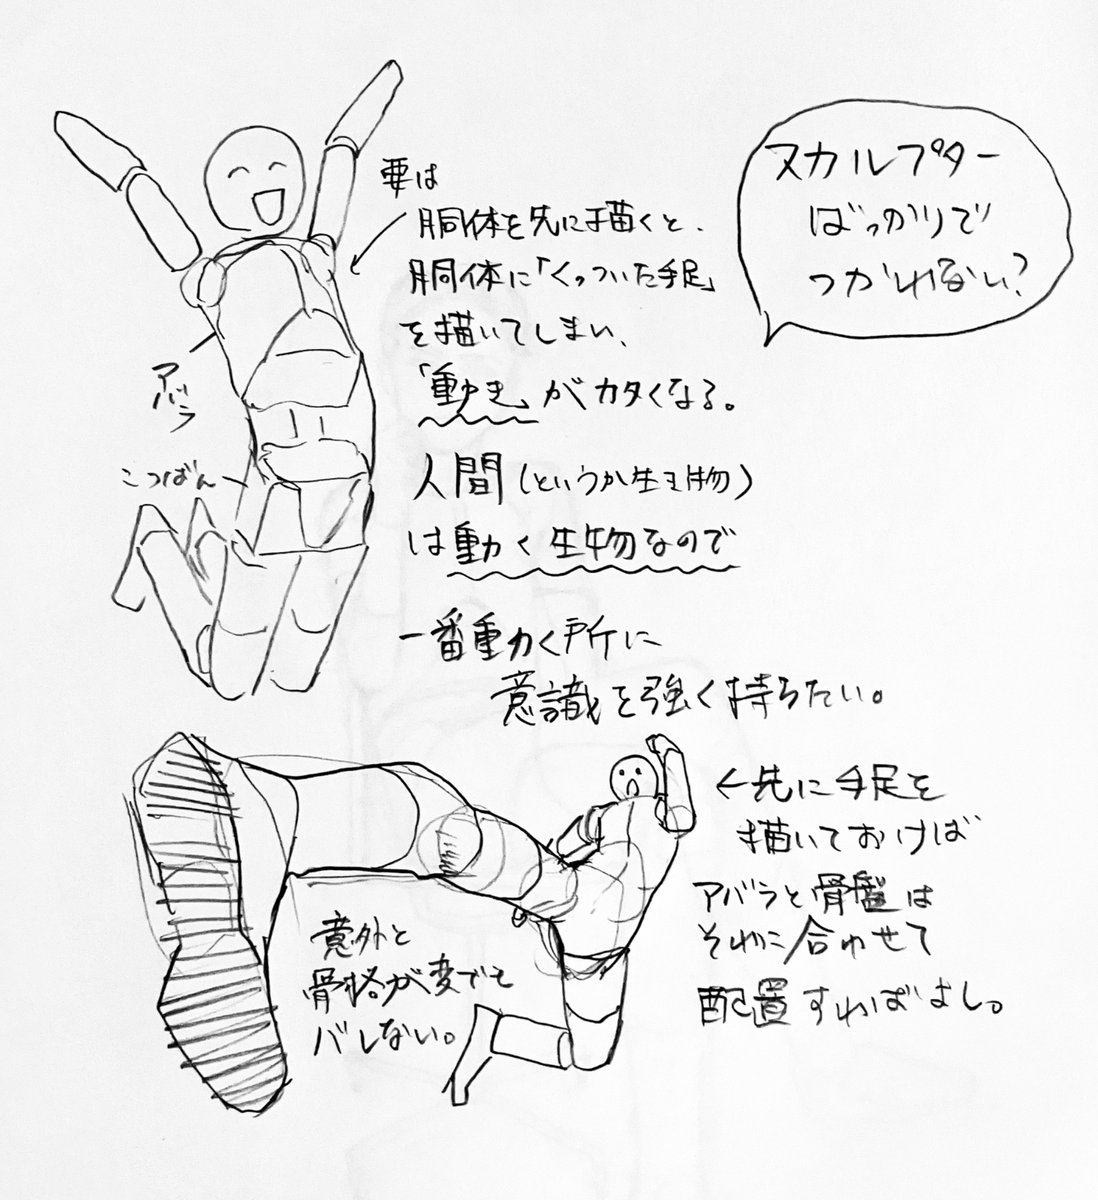 ヌカルプター
ばっかりで
つかれない?
要は
胴体を先に描くと、
胴体に「くっついた手足」
を描いてしまい、
「動き」がカタくなる。
アバラ
こつばん
人間(というか生き物)
は動く生物なので
一番動く所に
意識を強く持ちたい。
←先に手足を
描いておけば
アバラと骨盤は
それに合わせて
配置すればよし。
意外と
骨格が変でも
バレない。